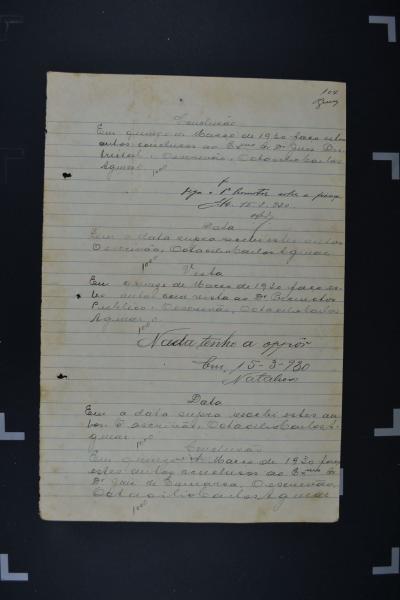 104
Conclusão
Em quinze de Março de 1930 faço estes
autos conclusos ao Exmo Sr Dr Juiz Dis-
trictal. O escrivão, Octacilio Carlos
Aguiar.
1000
Diga o Dr Promotor sobre a
15-3-930
Data
Em a data supra recebi estes autos
O escrivão, Octacilio Carlos Aguiar
1000
Vista
Em quinze de Março de 1930 faço es-
tes autos com vista ao Dr Promotor
Publico. O escrivão, Octacilio Carlos
Aguiar
1000
Nada tenho a oppôr
Em, 15-3-930
Data
Em a data supra recebi estes au-
tos. O escrivão, Octacilio Carlos A-
guiar
1000
Conclusão
Em quinze de Março de 1930 faço
estes autos conclusos ao Exmo Sr
Dr Juiz de Comarca. O escrivão,
Octacilio Carlos Aguiar
1000